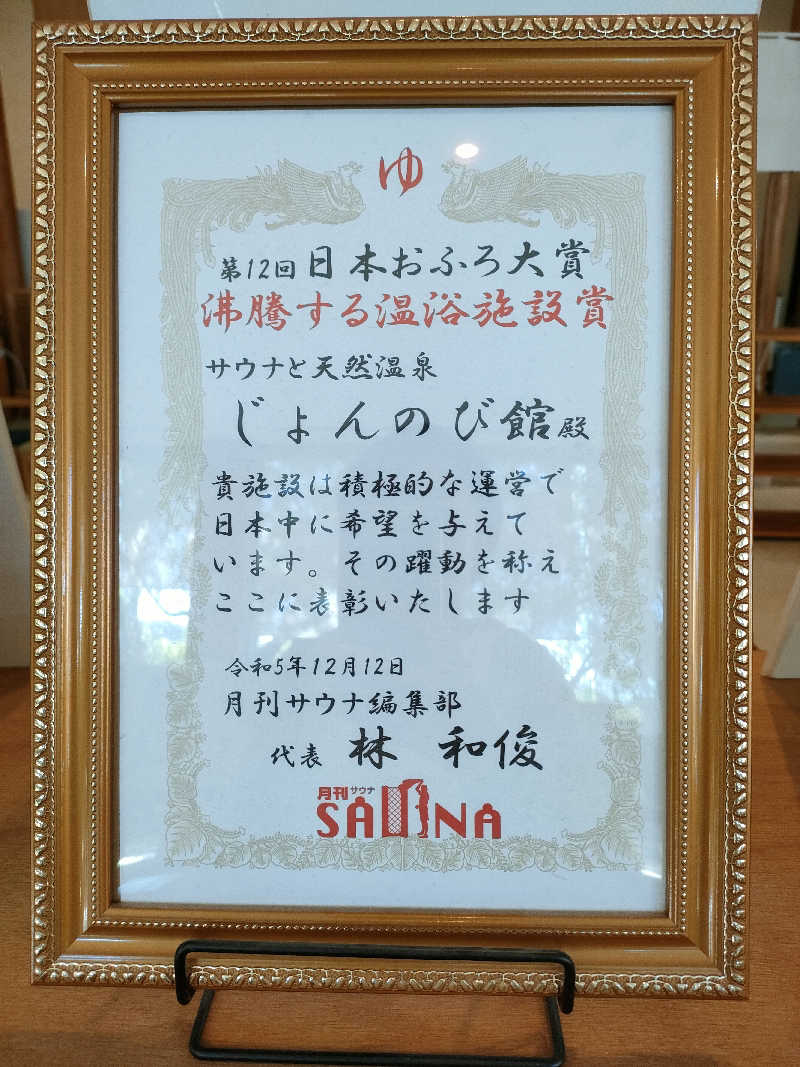 ゆ
第12回日本おふろ大賞
沸騰する温浴施設賞
サウナと天然温泉
じょんのび館殿
貴施設は積極的な運営で
日本中に希望を与えて
います。その躍動を称え
ここに表彰いたします
令和5年12月12日
月刊サウナ編集部
代表 林 和俊
月刊サウナ
SAUNA